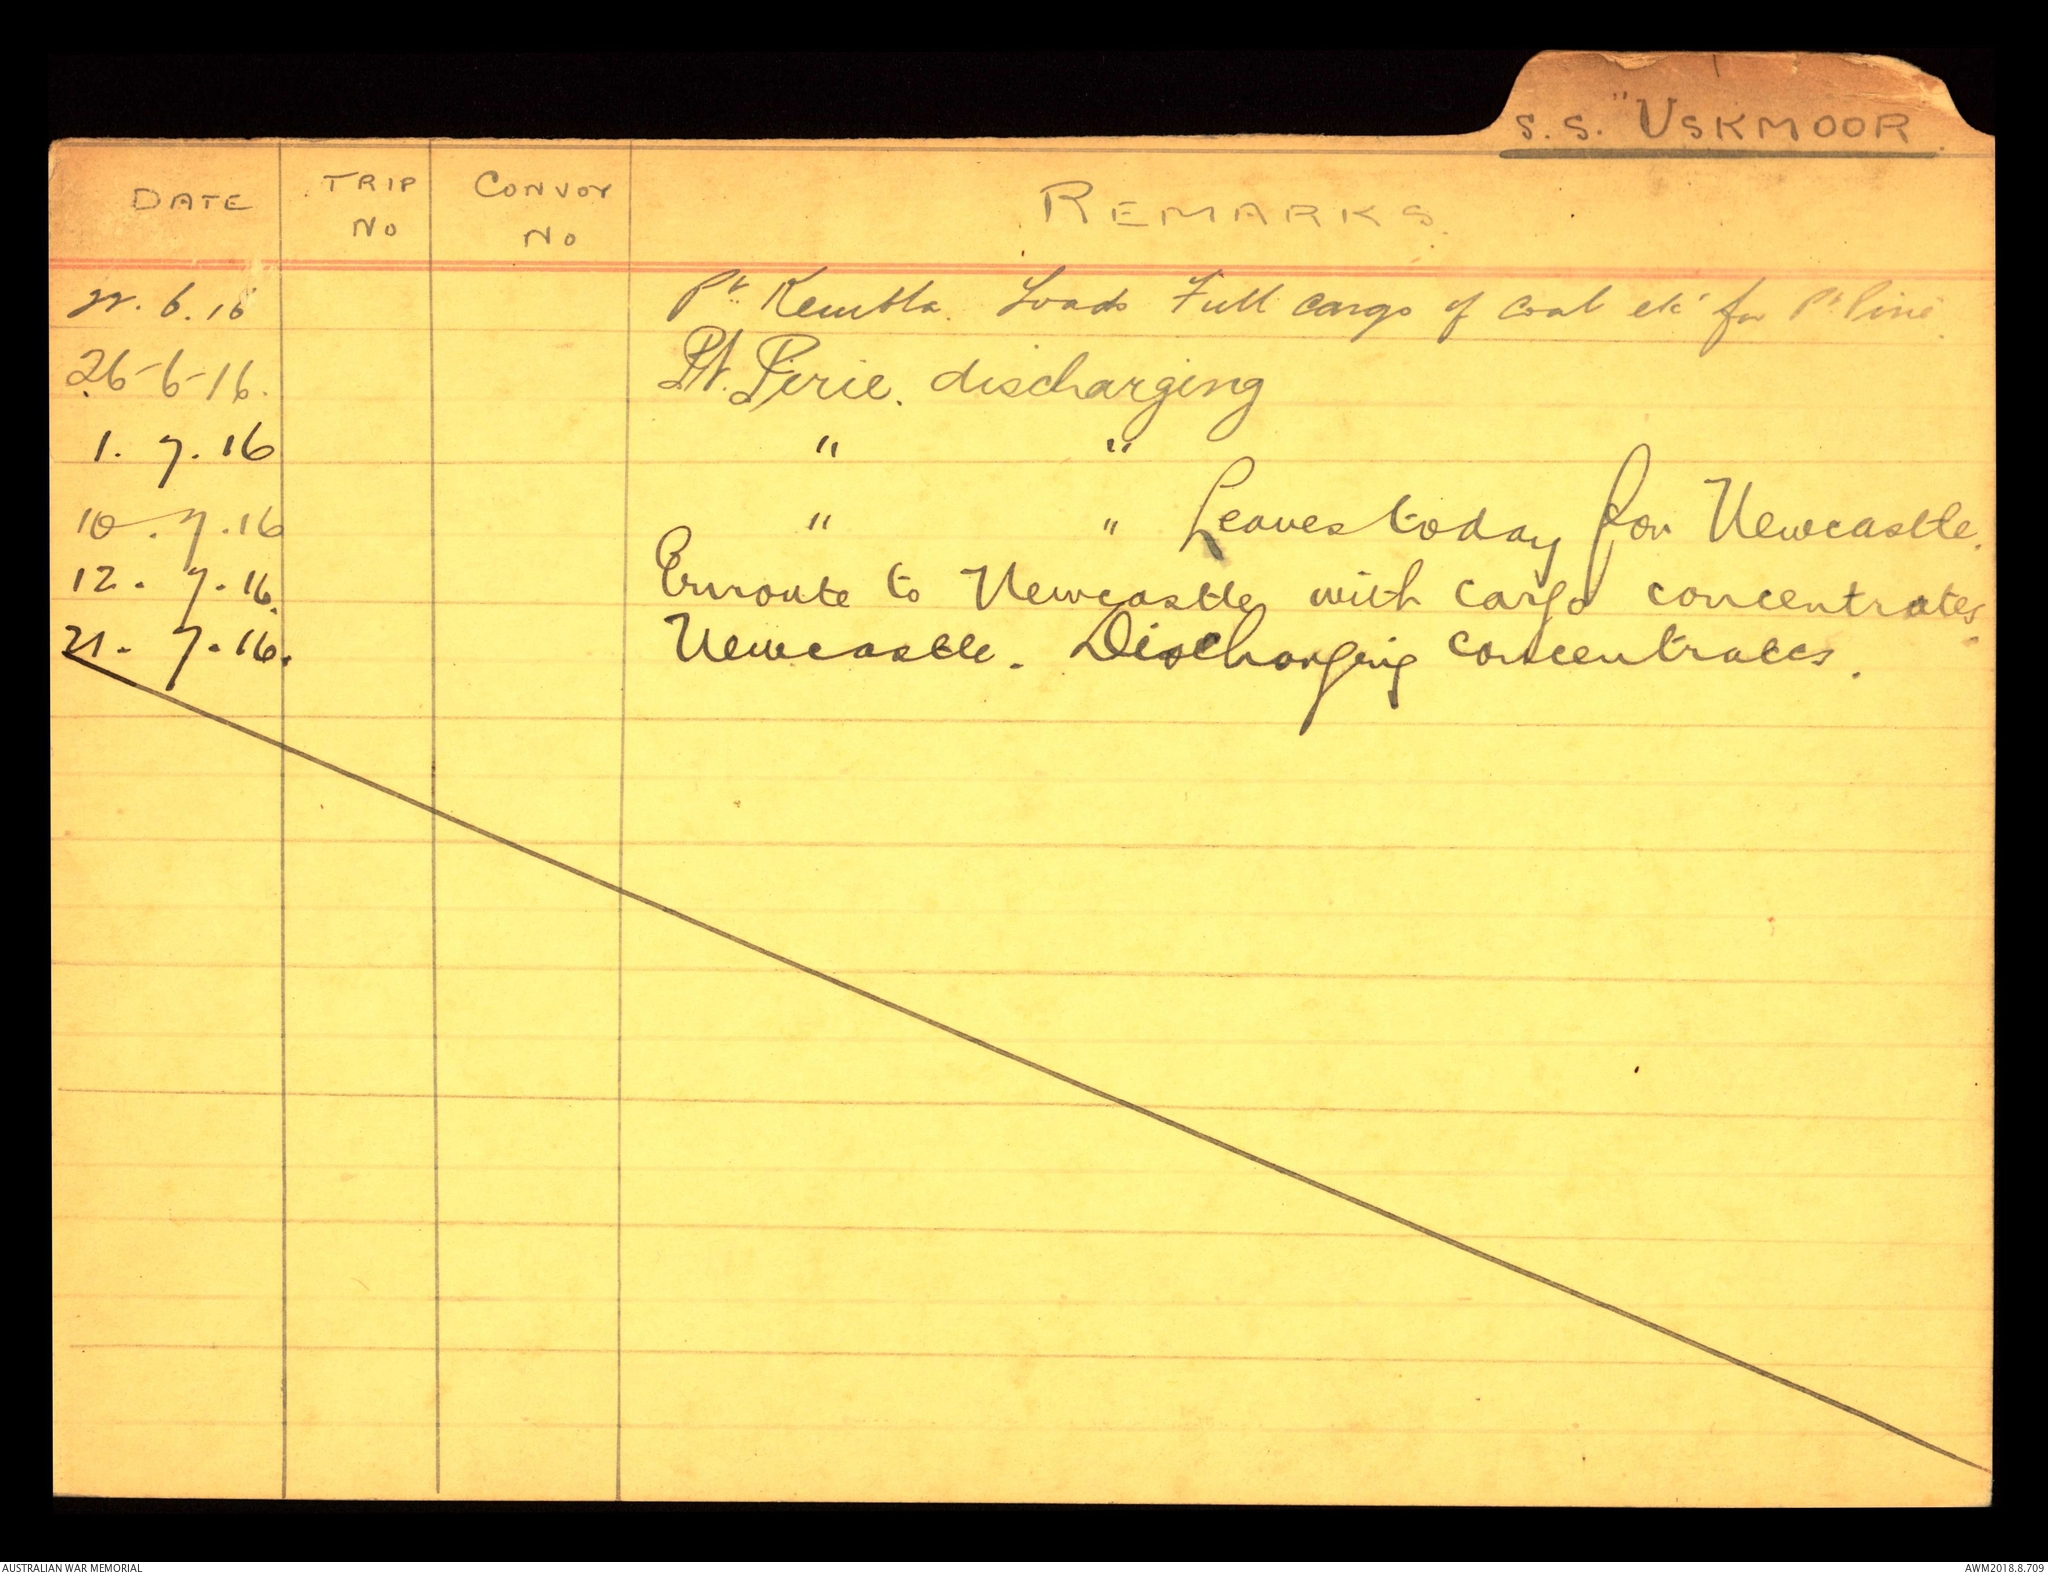 S.S. "USKMOOR
DATE TRIP NO CONVOY NO REMARKS.
22.6.16 Pt. Kembla. Loads Full cargo of coal etc for Pt. Pirie.
26-6-16. Pt. Pirie. discharging
1.7.16 " "
10.7.16 " " Leaves today for Newcastle.
12.7.16. Enroute to Newcastle with cargo concentrates.
21.7.16. Newcastle. Discharging concentrates.
AUSTRALIAN WAR MEMORIAL AWM2018.8.709